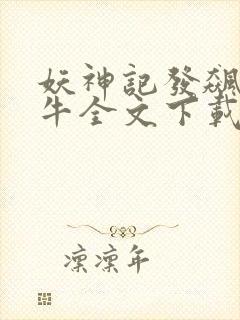 妖神記發飆
牛全文下載
凜凜年